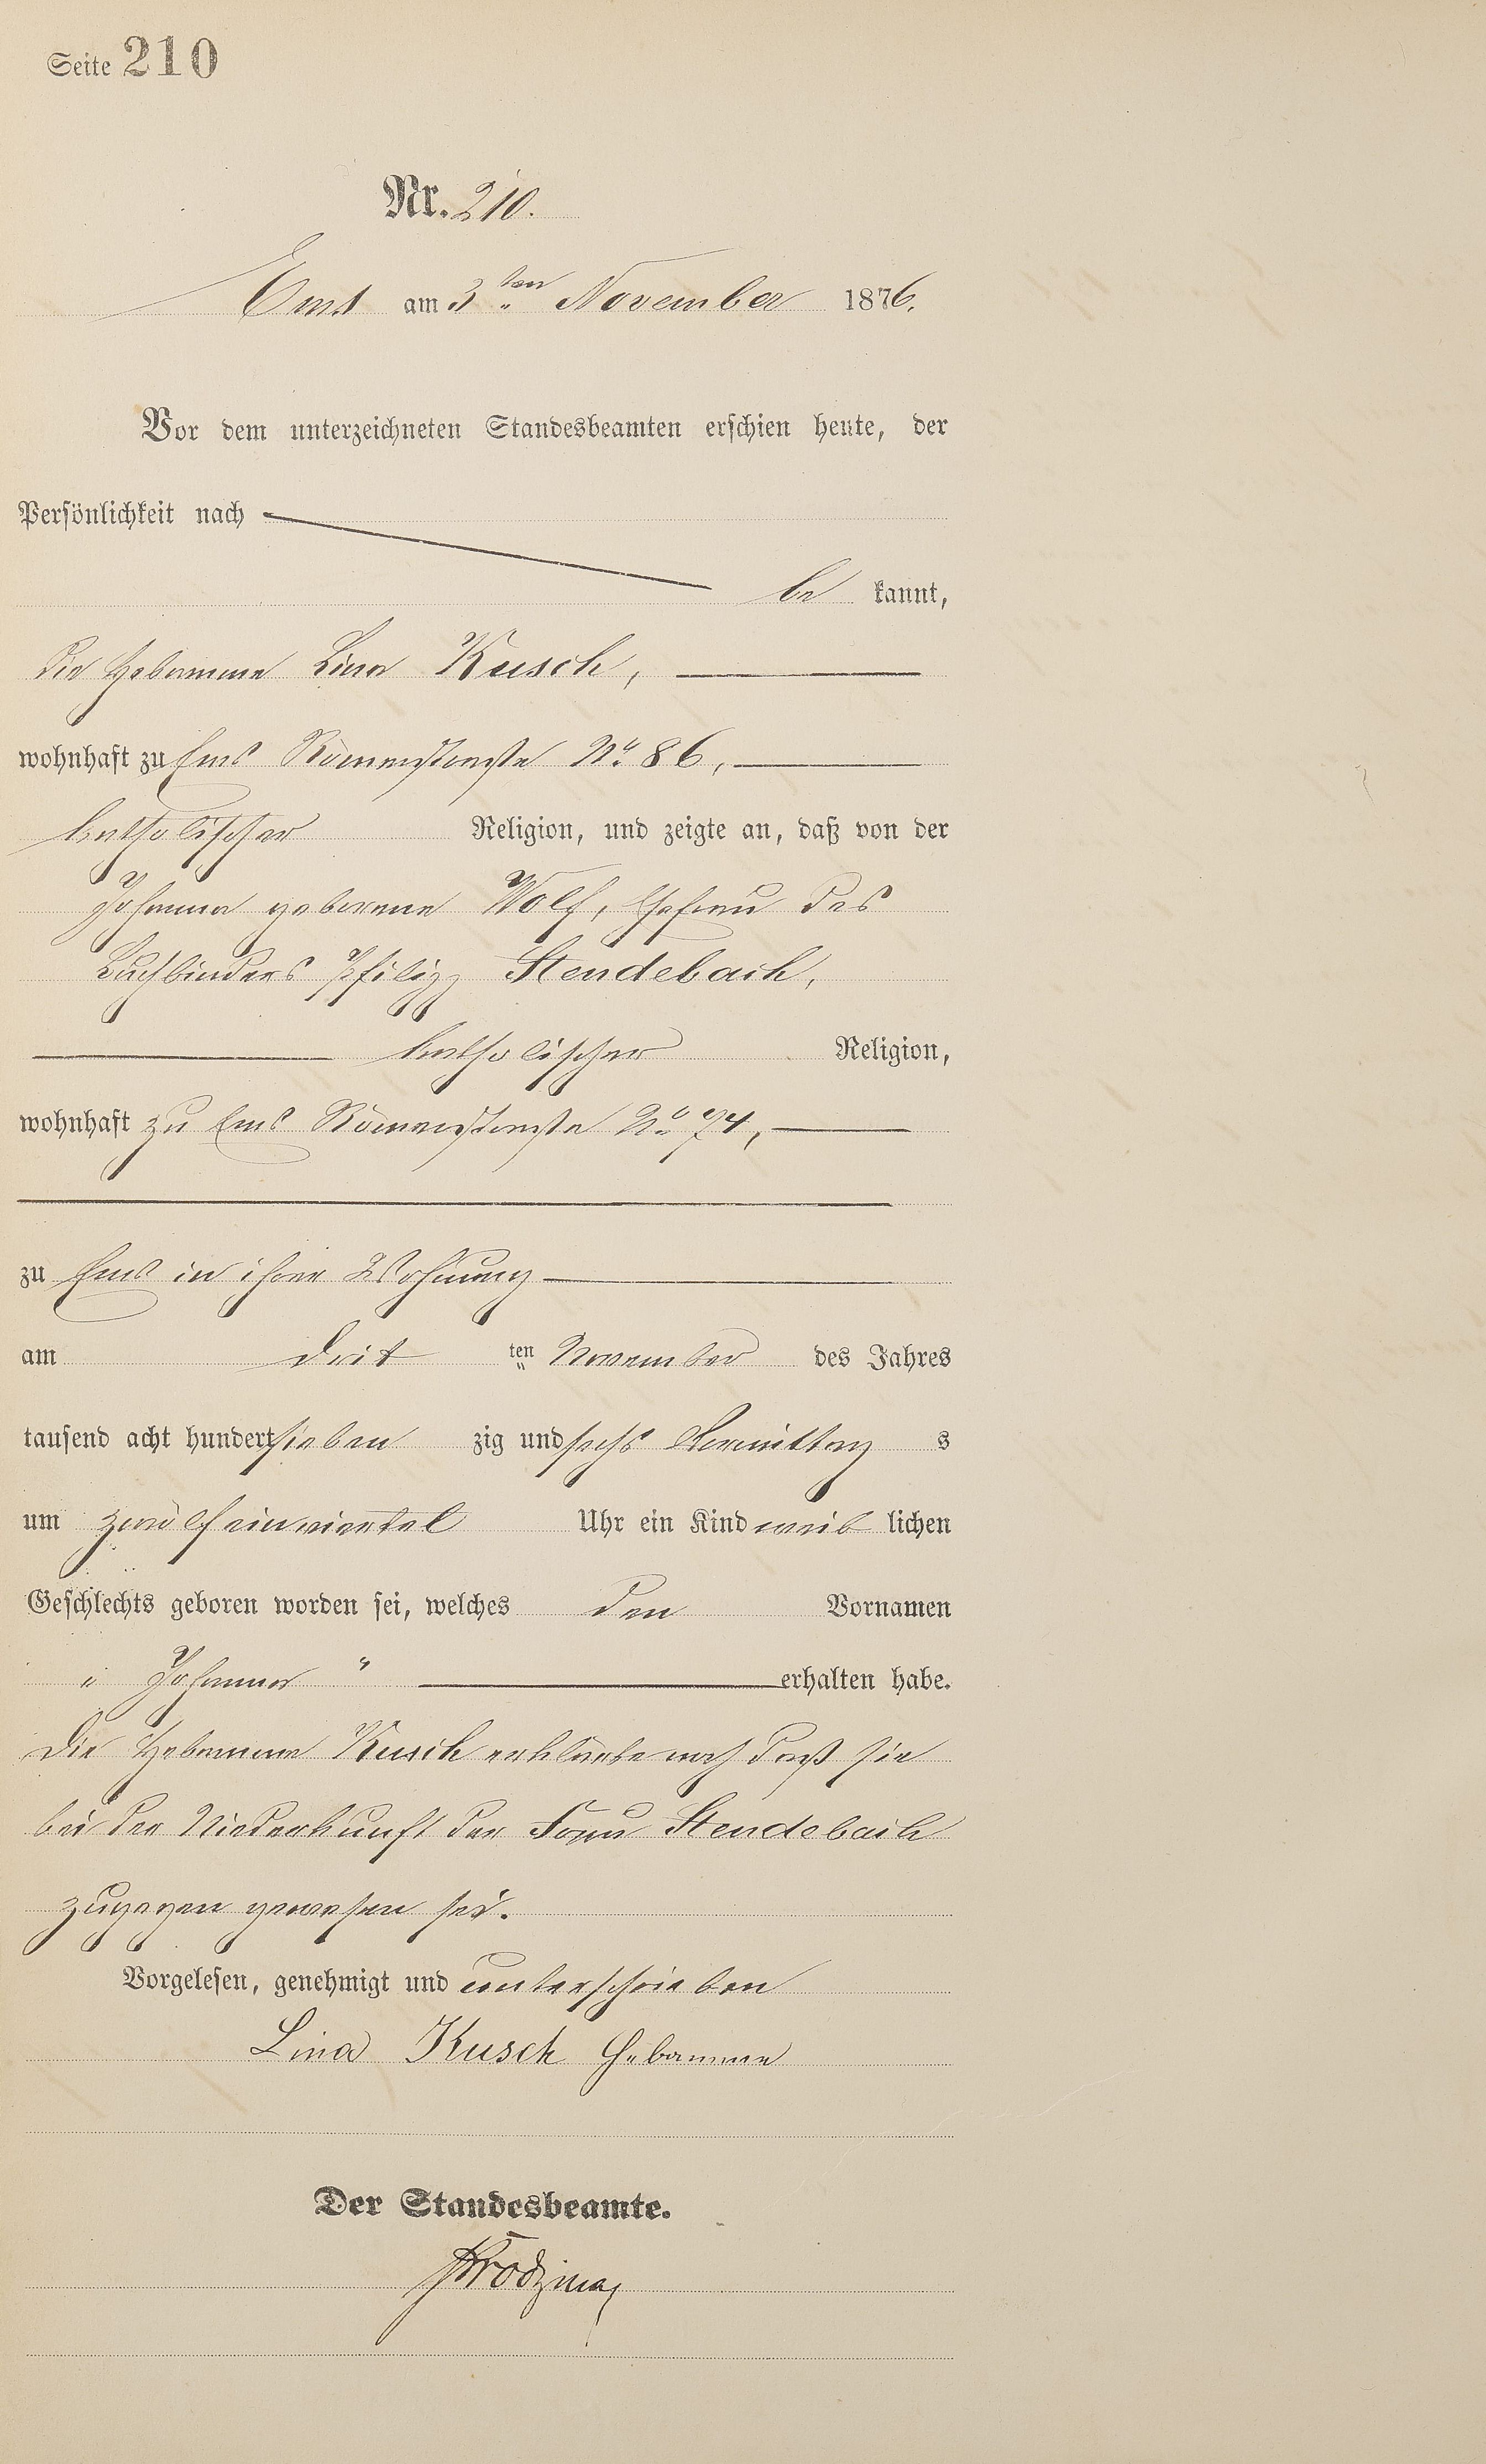 Seite 210
Nr. 210.
Ems am 3ten November 1876.
Vor dem unterzeichneten Standesbeamten erschien heute, der
Persönlichkeit nach
be kannt,
die Hebamme Lina Kusch,
wohnhaft zu Ems Römerstraße No. 86,
katholischer Religion, und zeigte an, daß von der
Johanna geborene Wolf, Ehefrau des
Buchbinders Philipp Stendebach,
katholischer Religion,
wohnhaft zu Ems Römerstraße No. 74,
zu Ems in ihrer Wohnung
am drit ten November des Jahres
tausend acht hundert sieben zig und sechs Vormittag s
um zwölf einviertel Uhr ein Kind weib lichen
Geschlechts geboren worden sei, welches den Vornamen
„ Johanna “ erhalten habe.
Die Hebamme Kusch erklärte noch daß sie
bei der Niederkunft der Frau Stendebach
zugegen gewesen sei.
Vorgelesen, genehmigt und unterschrieben
Lina Kusch Hebamme
Der Standesbeamte.